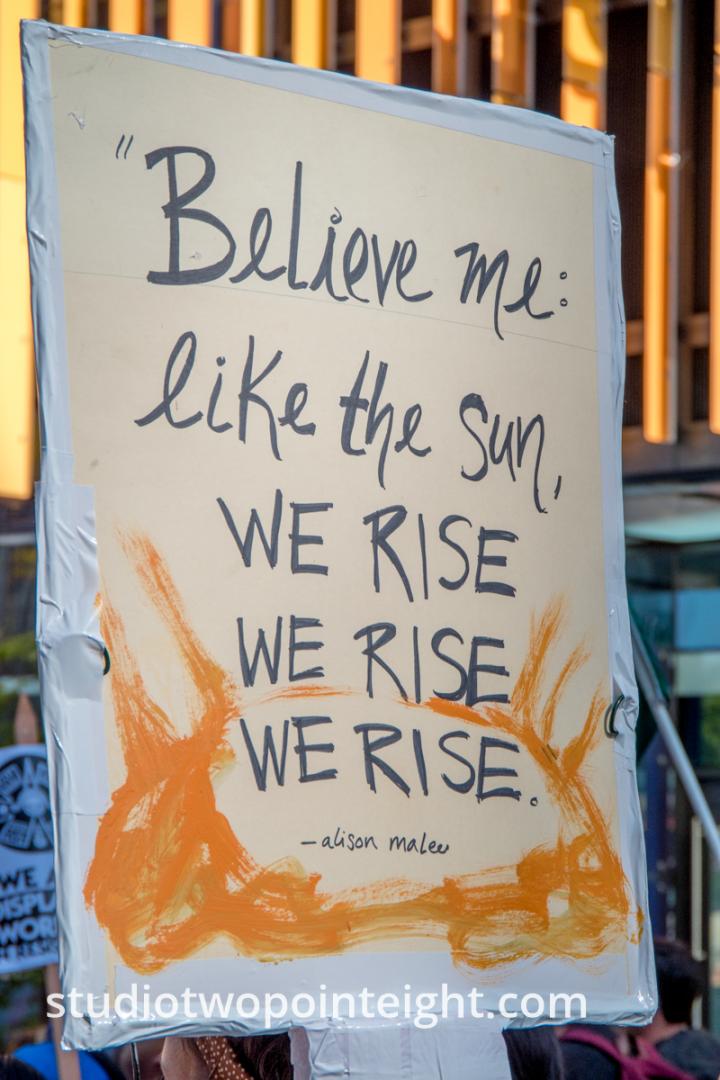 "Believe me:
like the sun,
WE RISE
WE RISE
WE RISE.
—alison malee
WE A
DISPL
WORK
studiotwopointeight.com